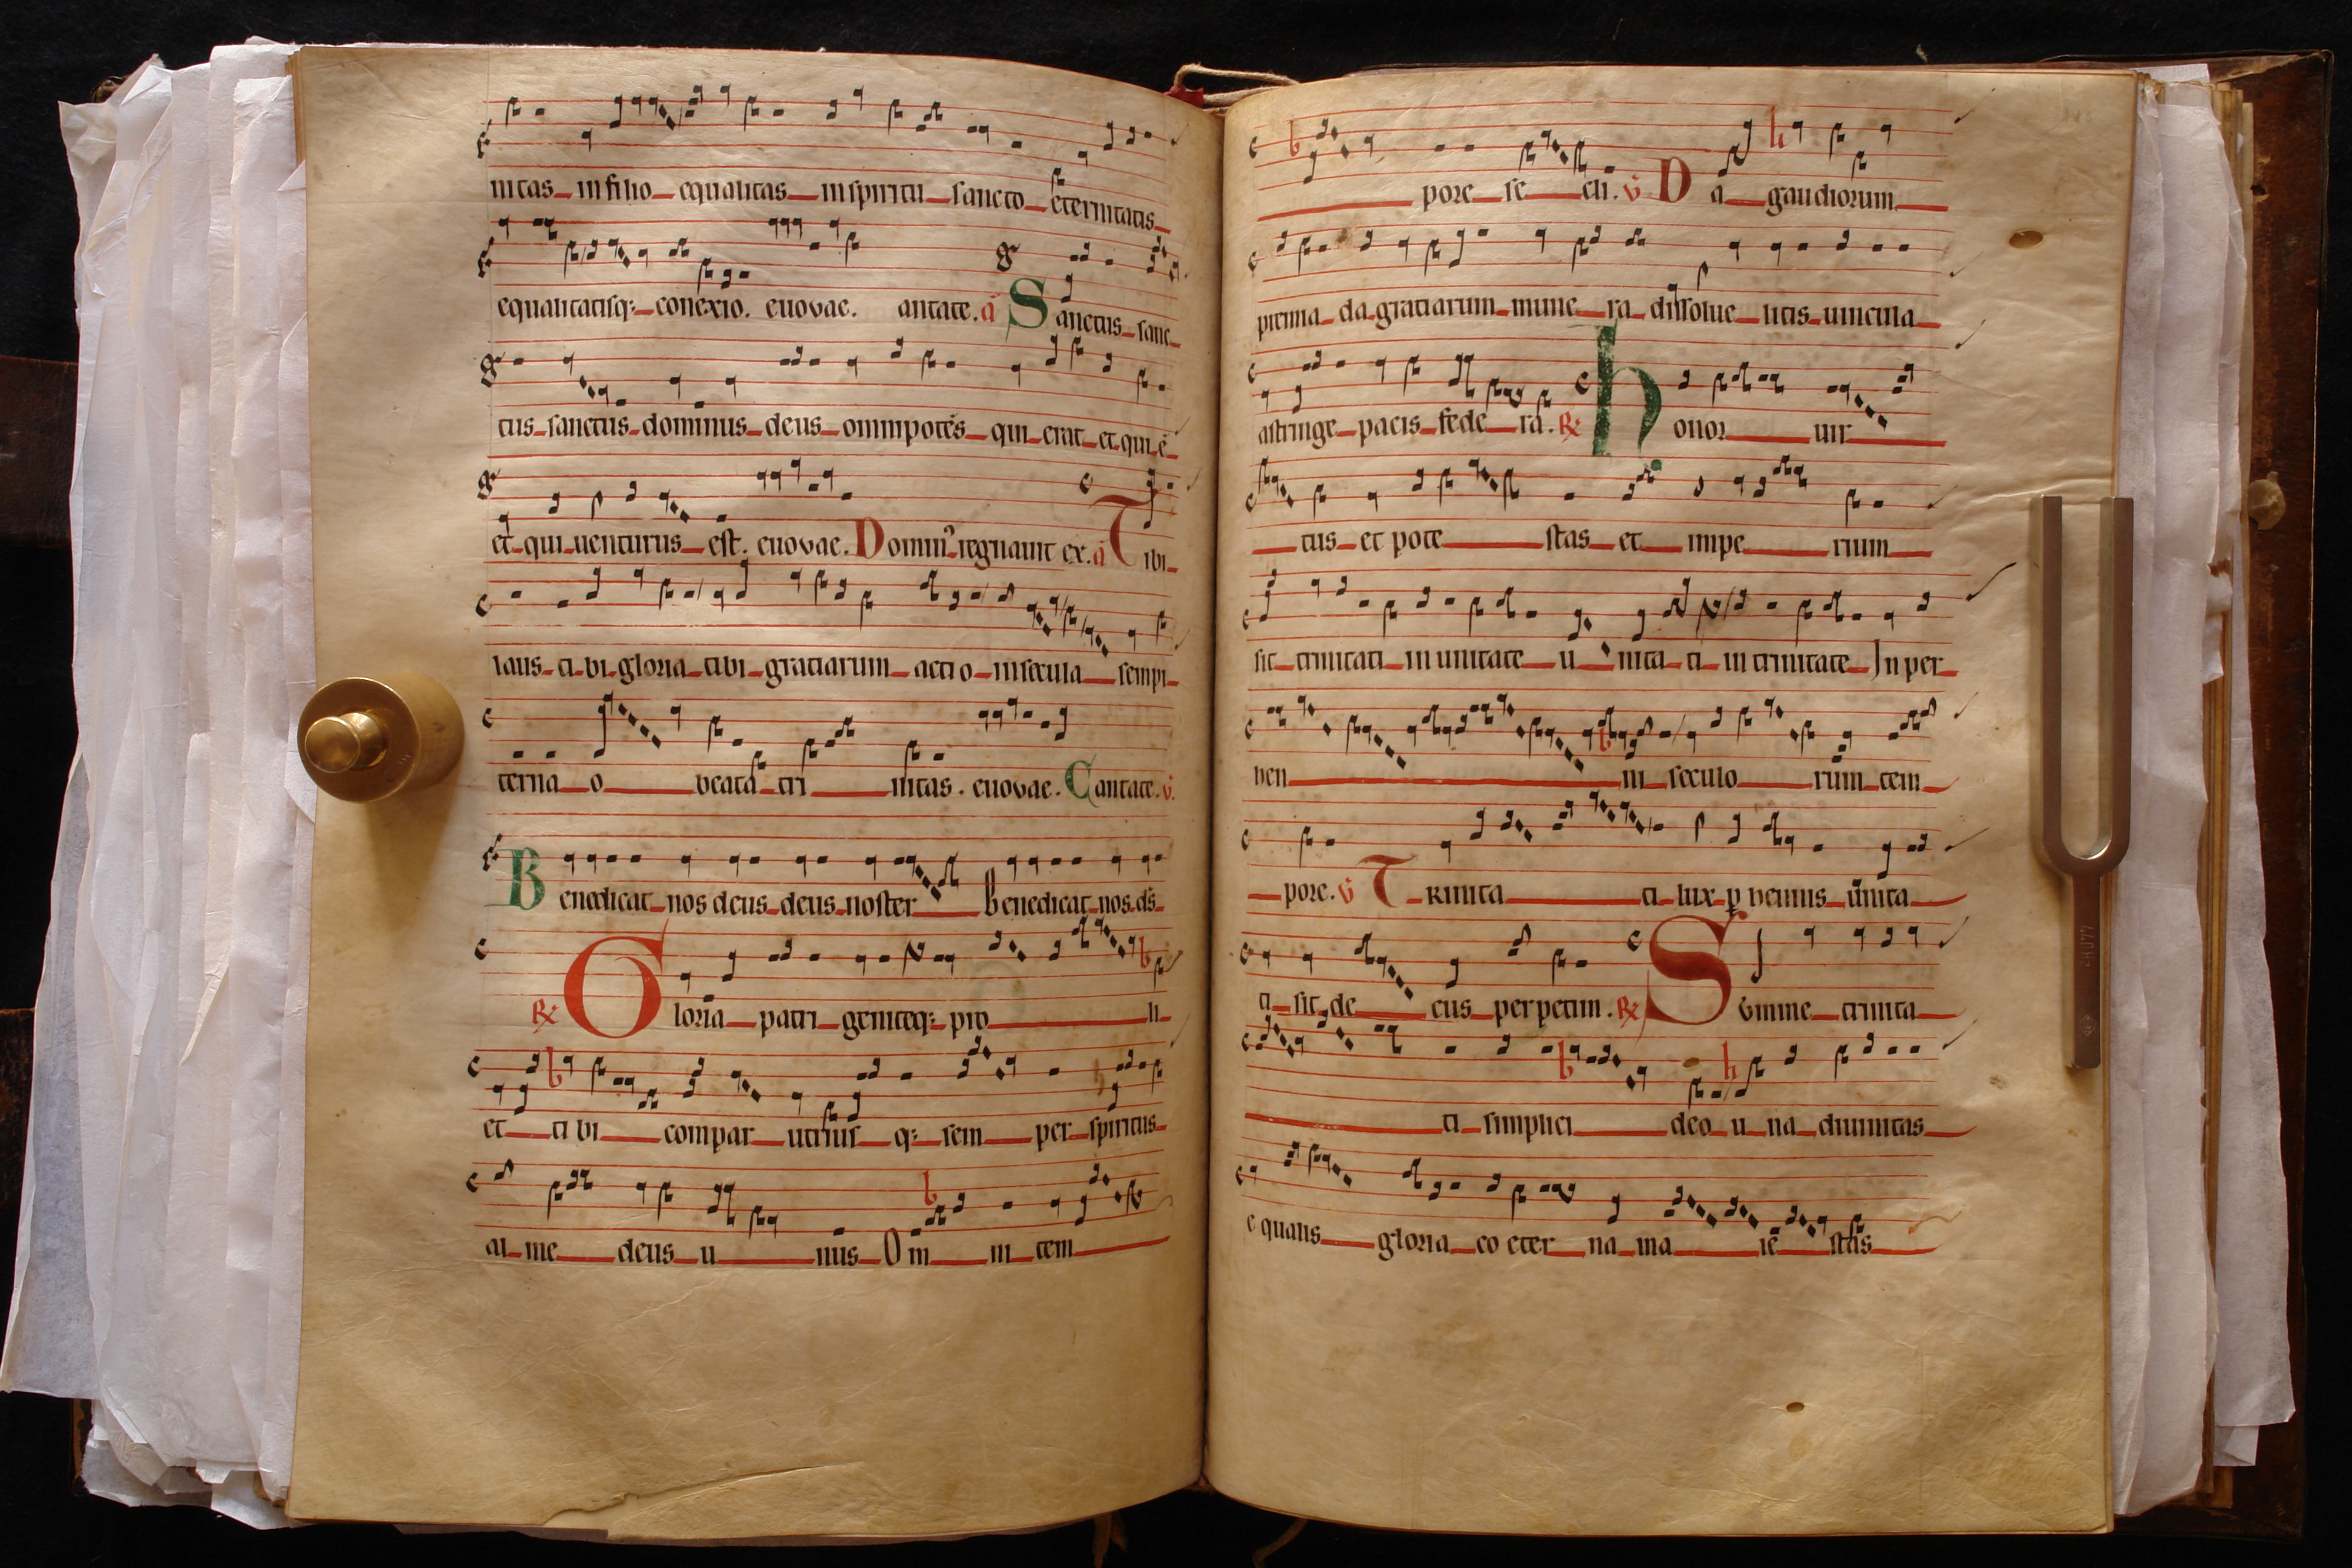 nitas in filio equalitas in spiritu sancto eternitatis
equalitatisq; conexio. euovae. antate. a Sanctus sanc
tus sanctus dominus deus omnipotēs qui erat et qui ē
et qui uenturus est. euovae. Domin⁹ regnauit ex. a Tibi
laus tibi gloria tibi gratiarum actio in secula sempi
terna o beata trinitas. euovae. Cantate. v̄.
Benedicat nos deus deus noster Benedicat nos ds̄
R̷ Gloria patri geniteq; pro li
et tibi compar utrius q; sem per spiritus
al me deus u nus Om ni tem
pore se cli. v̄ Da gaudiorum
premia da gratiarum mune ra dissolue litis uincula
astringe pacis fede ra. R̷ Honor uir
tus et pote stas et impe rium
sit trinitati in unitate u nita ti in trinitate In per
hen ni seculo rum tem
pore. v̄ TRinita ti lux ꝑ hennis unita
ti sit de cus perpetim. R̷ Summe trinita
ti simplici deo u na diuinitas
equalis gloria co eter na ma ie stas